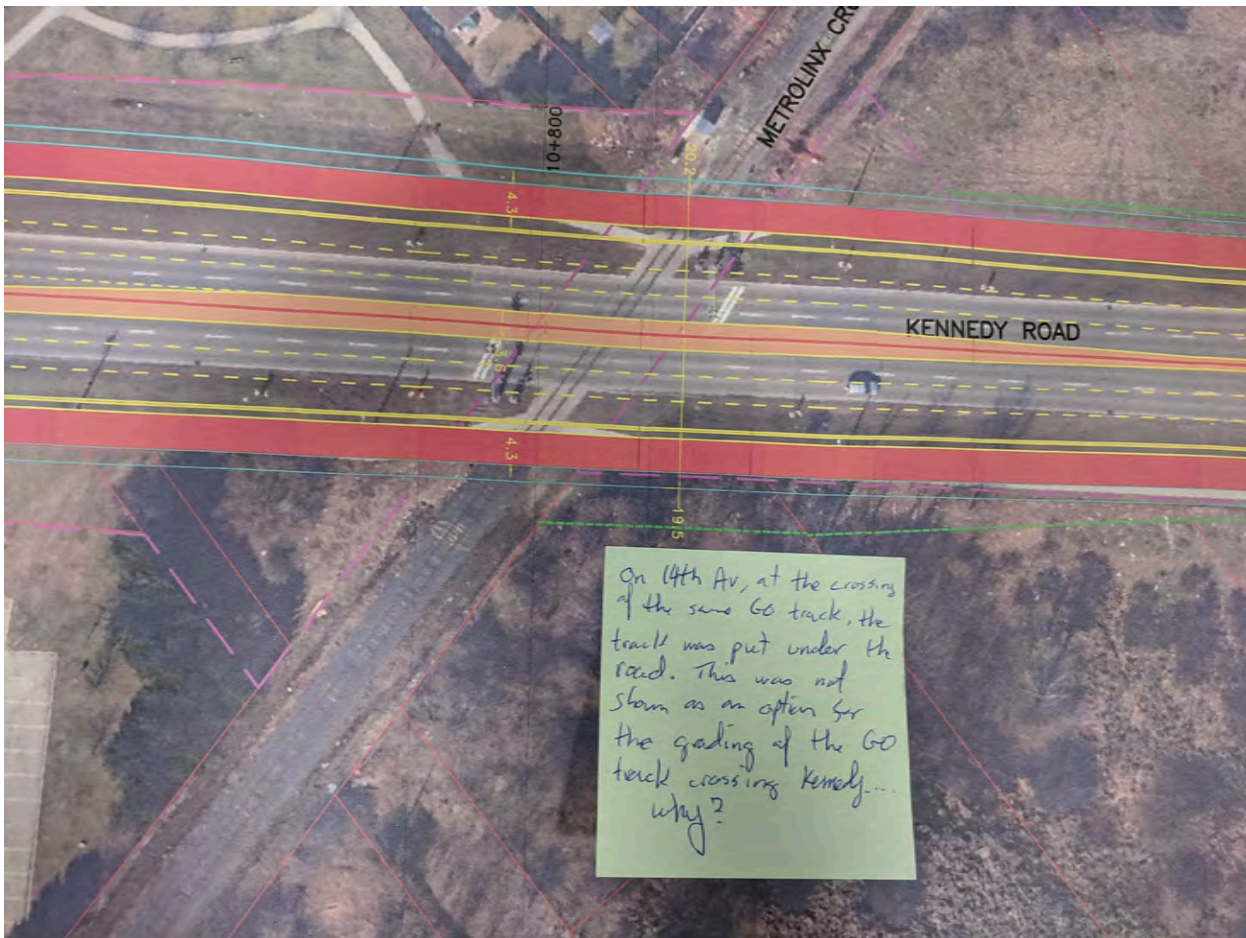 METROLINX CRO
10+800
20.2
4.3
KENNEDY ROAD
3.6
4.3
19.5
On 14th Av, at the crossing
of the same GO track, the
track was put under the
road. This was not
shown as an option for
the grading of the GO
track crossing Kennedy...
why?